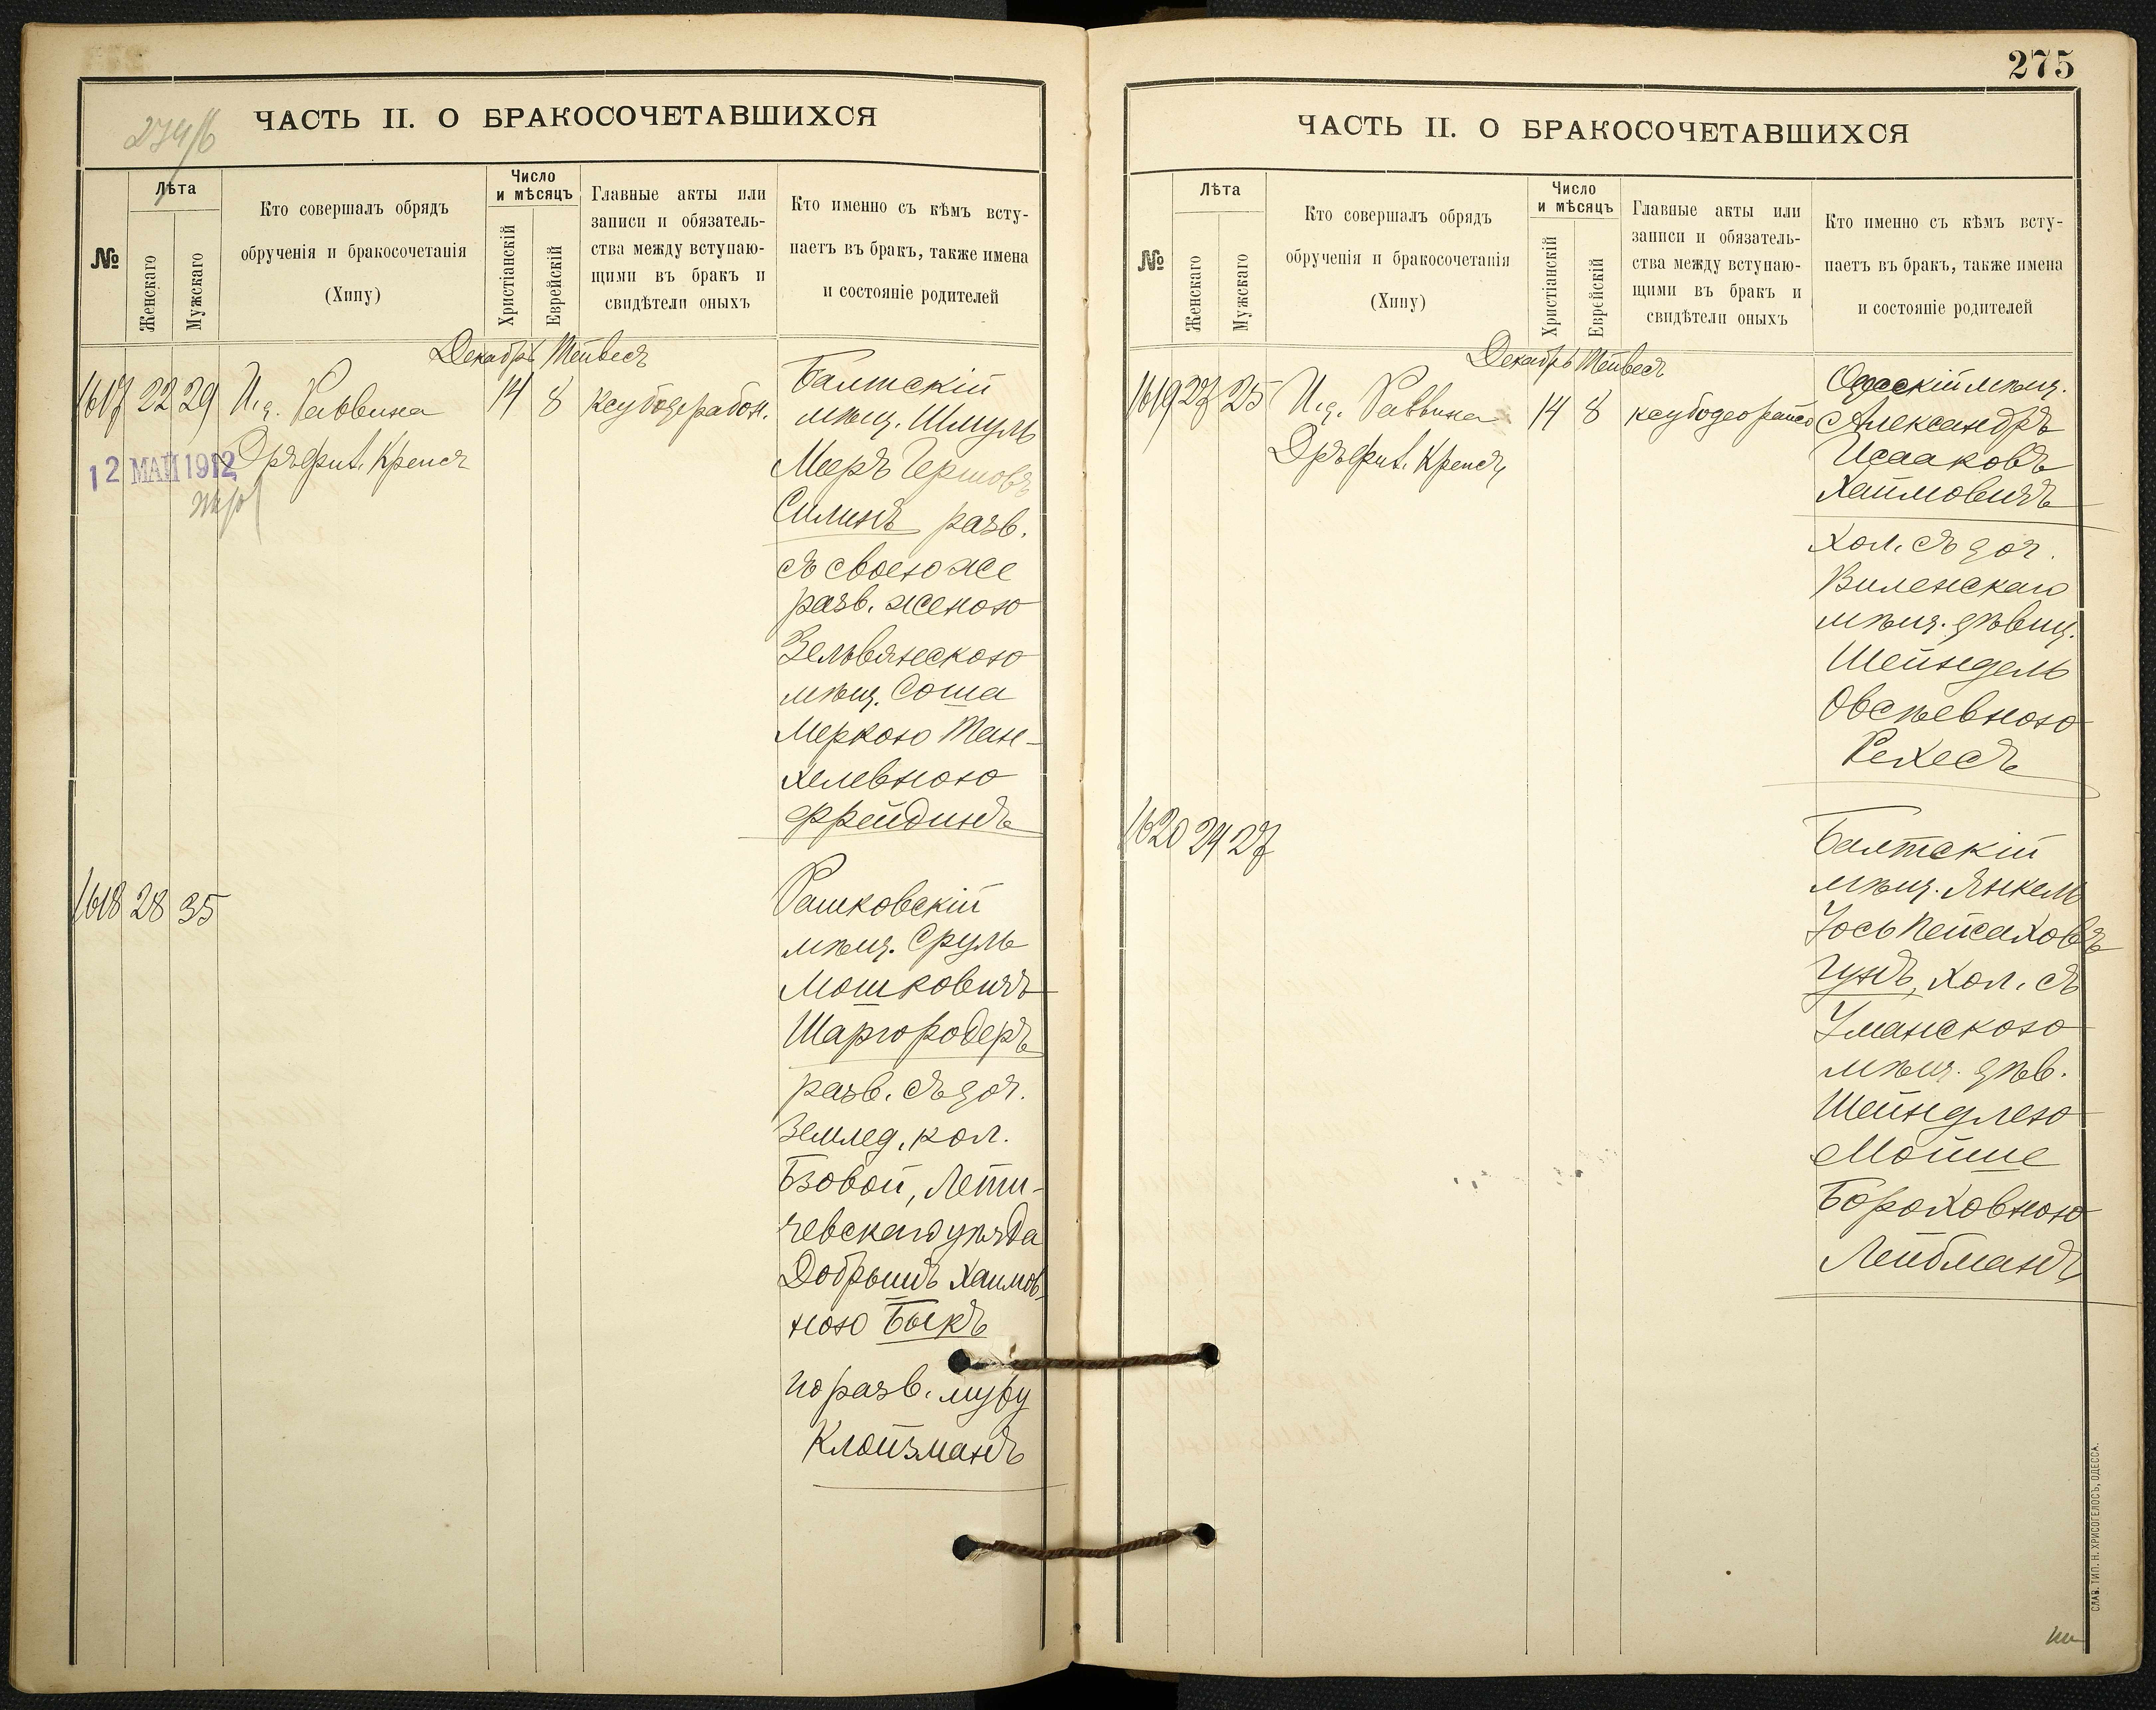 ЧАСТЬ II. О БРАКОСОЧЕТАВШИХСЯ
274/б
№
Лѣта
Женскаго
Мужскаго
Кто совершалъ обрядъ
обрученія и бракосочетанія
(Хипу)
Число
и мѣсяцъ
Христіанскій
Еврейскій
Главные акты или
записи и обязатель-
ства между вступаю-
щими въ бракъ и
свидѣтели оныхъ
Кто именно съ кѣмъ всту-
паетъ въ бракъ, также имена
и состояніе родителей
Декабрь Тейвесъ
1617 22 29 И.д. Раввина 14 8
12 МАЙ 1912
Крепсъ
Балтскій
мѣщ. Шмуль
Мееръ Гершовъ
Силинъ разв.
съ своею же
разв. женою
Зельвянскою
мѣщ. Соша
Меркою Тан-
хелевною
Фрейдинъ
1618 28 35
Рашковскій
мѣщ. Сруль
Мошковичъ
Шаргородеръ
разв. съ доч.
землед. кол.
Бзовой, Лети-
чевскаго уѣзда
Добрышъ Хаимов-
ною Быкъ
по разв. мужу
Клойзманъ
275
ЧАСТЬ II. О БРАКОСОЧЕТАВШИХСЯ
№
Лѣта
Женскаго
Мужскаго
Кто совершалъ обрядъ
обрученія и бракосочетанія
(Хипу)
Число
и мѣсяцъ
Христіанскій
Еврейскій
Главные акты или
записи и обязатель-
ства между вступаю-
щими въ бракъ и
свидѣтели оныхъ
Кто именно съ кѣмъ всту-
паетъ въ бракъ, также имена
и состояніе родителей
Декабрь Тейвесъ
1619 27 25 И.д. Раввина 14 8
Крепсъ
Одесскій мѣщ.
Александръ
Исааковъ
Хаймовичъ
хол. съ доч.
Виленскаго
мѣщ. дѣвиц.
Шейндель
Овсѣевною
Рехесъ
1620 24 27
Балтскій
мѣщ. Янкель
Іось Пейсаховъ
Гунъ, хол. съ
Уманскою
мѣщ. дѣв.
Шейндлею
Мойше
Бороховною
Лейбманъ
СЛАВ. ТИП. Н. ХРИСОГЕЛОСЪ, ОДЕССА.